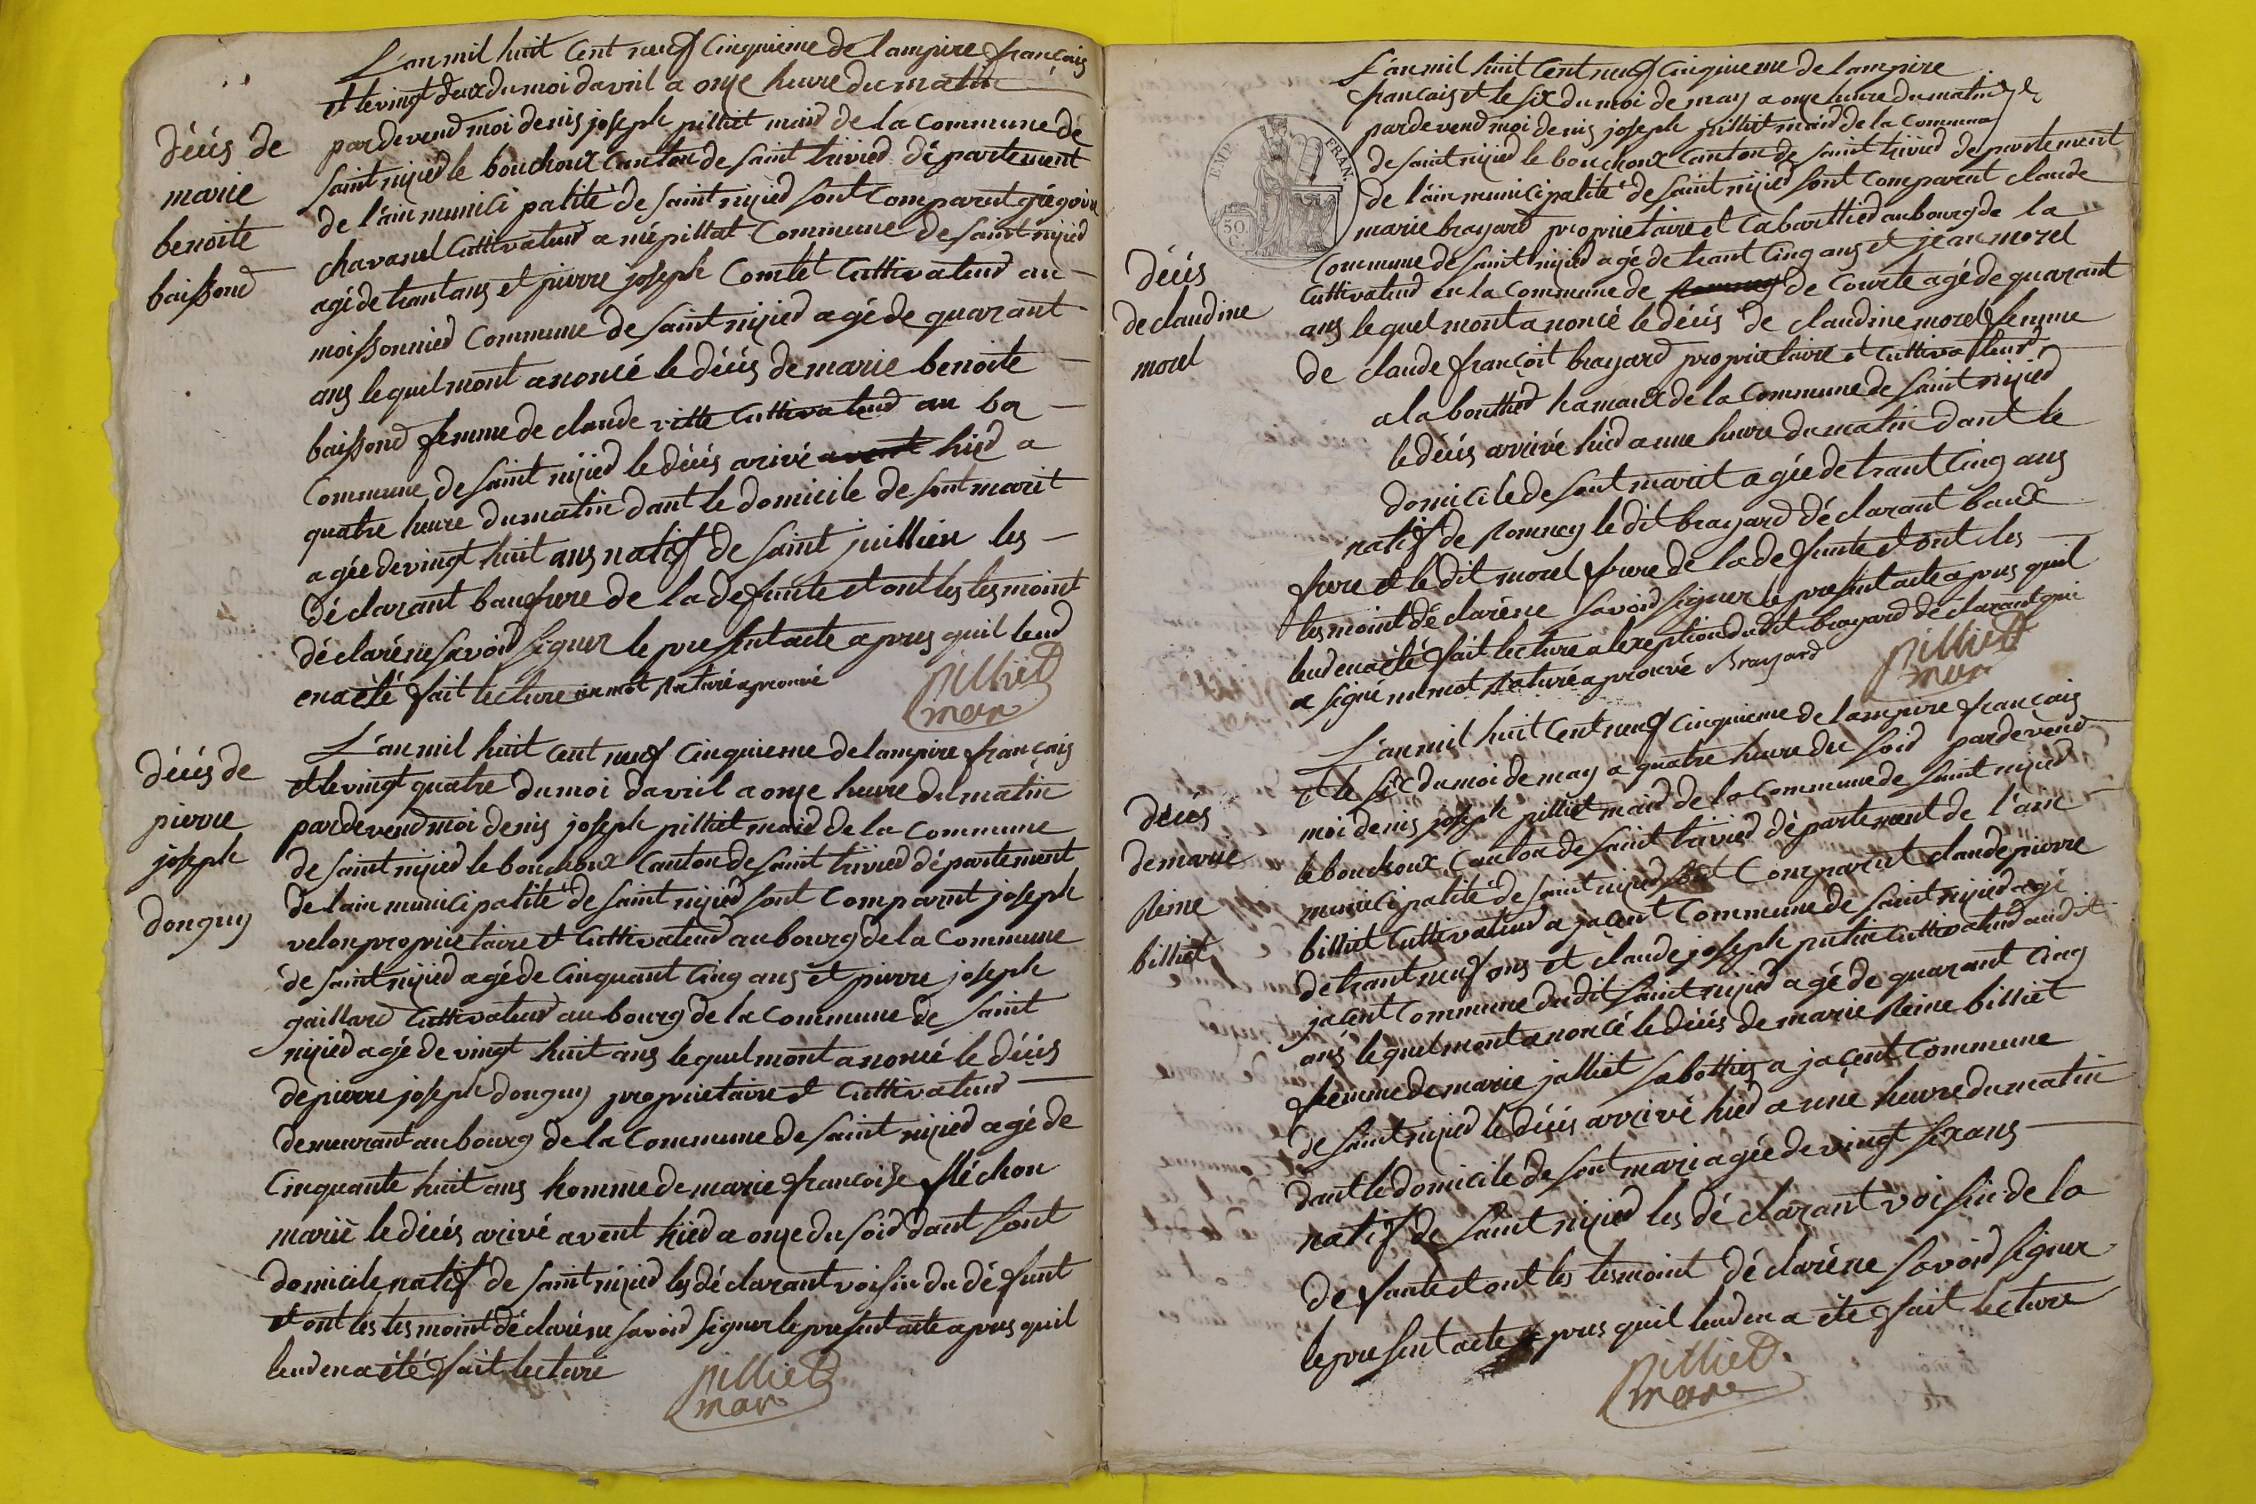 L'an mil huit cent neuf cinquieme de lampire français
et le vingt deux du moi d'avril a onze heure du matin
décés de
marie
benoite
baissond
pardevend moi denis joseph pilliet maid de la commune de
saint nizied le bouchoux canton de saint trivied département
de l'ain municipalité de saint nizied sont comparut grégoire
chavanel cuttivateud a mépillat commune de saint nizied
agé de trant ans et pierre joseph comtet cuttivateud au
moissonnied commune de saint nizied agé de quarant
ans lequel mont anoncé le décés de marie benoite
baissond femme de claude vitte cuttivateud au ba
commune de saint nizied le décés arivé avent hied a
quatre heure du matin dant le domicile de sont marit
agée de vingt huit ans natif de saint juillien les
déclarant baufrere de la defunte et ont les tesmoint
déclaréne savoid signer le present acte apres quil leud
en a été fait lecture un mot raturé aprouvé
pilliet
mer
L'an mil huit cent neuf cinquieme de lampire français
et le vingt quatre du moi d'avril a onze heure du matin
décés de
pierre
joseph
donguy
pardevend moi denis joseph pilliet maid de la commune
de saint nizied le bouchoux canton de saint trivied département
de lain municipalité de saint nizied sont comparut joseph
velon propriétaire et cuttivateud au bourg de la commune
de saint nizied agé de cinquant cinq ans et pierre joseph
gaillard cuttivateud au bourg de la commune de saint
nizied agé de vingt huit ans lequel mont anoncé le décés
de pierre joseph donguy propriétaire et cuttivateud
demeurant au bourg de la commune de saint nizied agé de
cinquante huit ans homme de marie francoise fléchon
marié le décés arivé avent hied a onze du soid dant sont
domicile natif de saint nizied les déclarant voisin du défunt
et ont les tesmoint déclaréne savoid signer le present acte apres quil
leud en a été fait lecture
pilliet
mar
EMP. FRAN.
50.
C.
L'an mil huit cent neuf cinquieme de lampire
francais et le six du moi de may a onze heure du matin
pardevend moi denis joseph pilliet maid de la commune
de saint nizied le bouchoux canton de saint trivied departement
de l'ain municipalité de saint nizied sont comparut claude
marie brayard propriétaire et cabarttied au bourg de la
commune de saint nizied agé de trant cinq ans et jean morel
décés
de claudine
morel
cuttivateud en la commune de romney de courte agé de quarant
ans lequel mont anoncé le décés de claudine morel femme
de claude françoit brayard propriétaire et cuttivateud
a la bouttied hamaux de la commune de saint nizied
le décés arrivé hied a une heure du matin dant le
domicile de sont marit agée de trant cinq ans
natif de romney le dit brayard déclarant baux
frere et le dit morel frere de la defunte et ont les
tesmoint déclaréne savoid signer le present acte apres quil
leud en a été fait lecture a lexeption du dit brayard déclarant qui
a signé un mot raturé aprouvé Brayard
pilliet
mar
L'an mil huit cent neuf cinquieme de lampire français
et le six du moi de may a quatre heure du soid pardevend
décés
de marie
reine
billiet
moi denis joseph pilliet maid de la commune de saint nizied
le bouchoux canton de saint trivied département de l'ain
municipalité de saint nizied sont comparut claude pierre
billiet cuttivateud a jacent commune de saint nizied agé
de trant neuf ans et claude joseph putin cuttivateud audit
jacent commune dudit saint nizied agé de quarant cinq
ans lequel mont anoncé le décés de marie reine billiet
femme de marie jalliet sabottier a jacent commune
de saint nizied le décés arrivé hied a une heure du matin
dant le domicile de sont mari agée de vingt six ans
natif de saint nizied les déclarant voisin de la
defunte et ont les tesmoint déclaréne savoid signer
le present acte apres quil leud en a été fait lecture
pilliet
mar